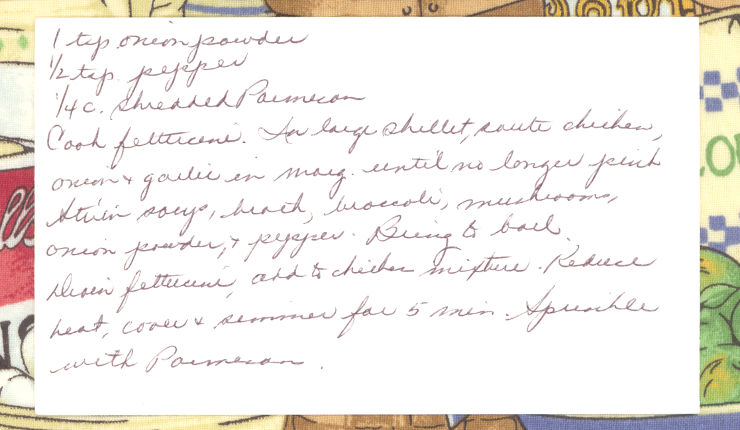 1 tsp onion powder
1/2 tsp. pepper
1/4 c. shredded Parmesan
Cook fettucini. In large skillet, saute chicken,
onion & garlic in marg. until no longer pink
Stir in soup, broth, broccoli, mushrooms,
onion powder, & pepper. Bring to boil.
Drain fettucini, add to chicken mixture. Reduce
heat, cover & simmer for 5 min. Sprinkle
with Parmesan.